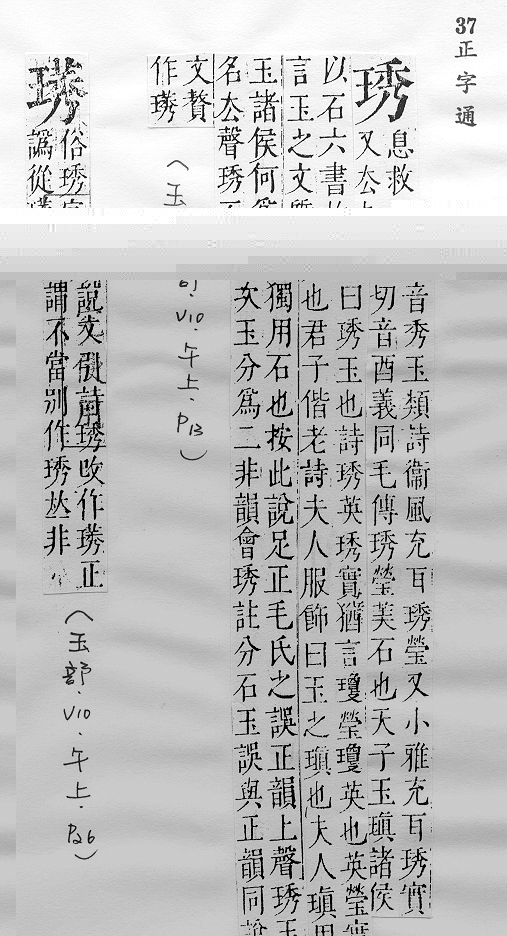 37 正字通
琇
息救音秀玉類詩衞風充耳琇瑩又小雅充耳琇實
又去切音酉義同毛傳琇瑩美石也天子玉瑱諸侯
以石六書曰琇玉也詩琇英琇實猶言瓊瑩瓊英也英瑩實
言玉之文也君子偕老詩夫人服飾曰玉之瑱也夫人瑱用
玉諸侯何獨用石也按此說足正毛氏之誤正韻上聲琇玉
名去聲琇次玉分爲二非韻會琇註分石玉誤與正韻同說
文贅
作璓
(玉 V10.午上.P13)
璓
俗琇說文引詩琇攺作璓正
譌從謂不當別作琇𠀤非
(玉部.V10.午上.P26)